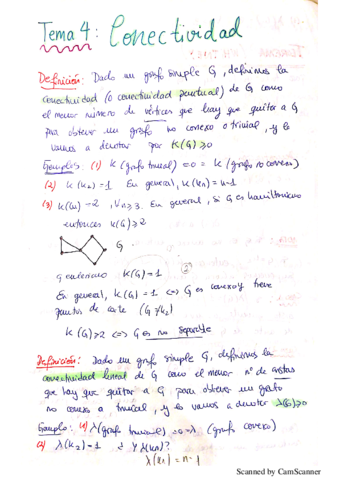 Tema 4: Conectividad
Definición: Dado un grafo simple G, definimos la
conectividad (o conectividad puntual) de G como
el menor número de vértices que hay que quitar a G
para obtener un grafo no conexo o trivial, y lo
vamos a denotar por K(G)≥0
Ejemplos (1) K(grafo trivial)=0= K(grafo no conexo)
(2) K(K₂)=1 En general, K(Kn)=n-1
(3) K(Cn)=2, ∀n≥3. En general, si G es hamiltoniano
entonces K(G)≥2
G
G entonces K(G)=1
En general, K(G)=1 <=> G es conexo y tiene
puntos de corte (G≠K₂)
K(G)≥2 <=> G es no separable
Definición: Dado un grafo simple G, definimos la
conectividad lineal de G como el menor nº de aristas
que hay que quitar a G para obtener un grafo
no conexo o trivial, y lo vamos a denotar λ(G)≥0
Ejemplo: (1) λ(grafo trivial)=0=λ (grafo conexo)
(2) λ(K₂)=1 ¿ Y λ(Kn)?
λ(Kn)=n-1
Scanned by CamScanner